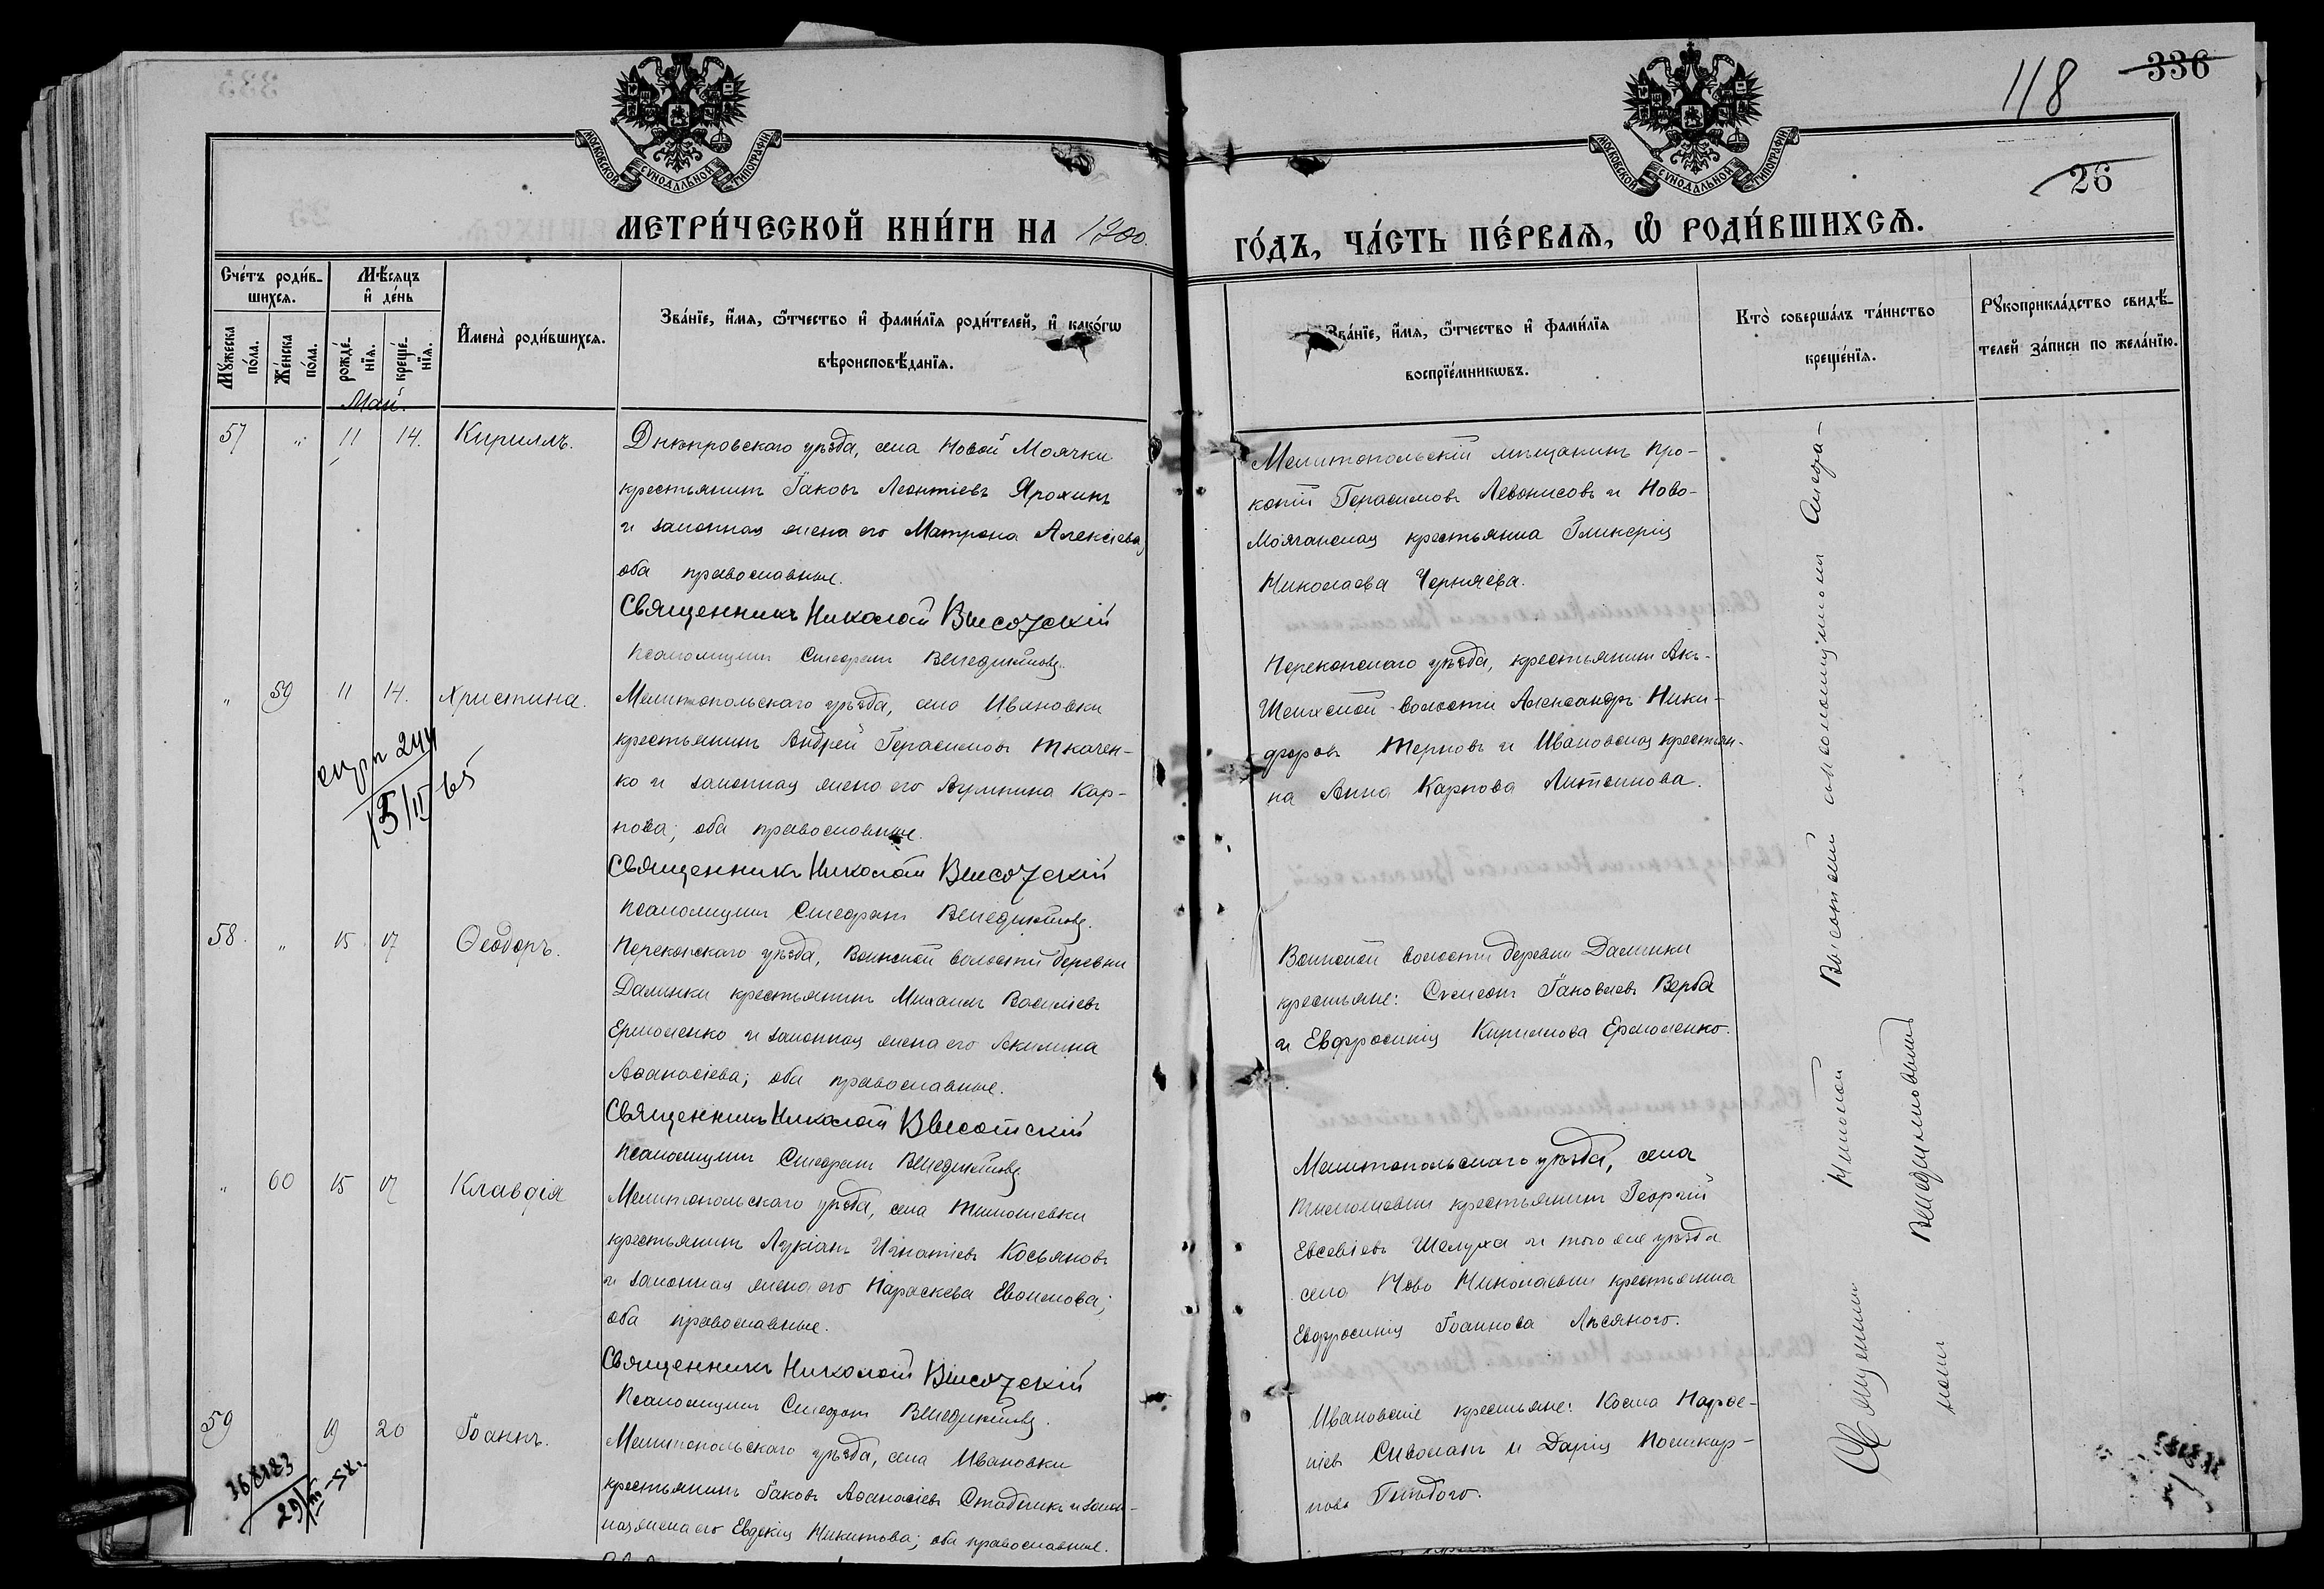 118 336
26
МОСКОВСКОЙ СѴНОДАЛЬНОЙ ТИПОГРАФІИ
МОСКОВСКОЙ СѴНОДАЛЬНОЙ ТИПОГРАФІИ
МЕТРИ́ЧЕСКОЙ КНИ́ГИ НА 1900.
ГО́ДЪ, ЧА́СТЬ ПЕ́РВАѦ, Ѡ҆ РОДИ́ВШИХСѦ.
Сче́тъ роди́в-
шихсѧ.
Мѣ́сѧцъ
и҆ де́нь
Мꙋ́жеска
по́ла.
Же́нска
по́ла.
рожде́-
нїѧ.
креще́-
нїѧ.
И҆мена̀ роди́вшихсѧ.
Зва́нїе, и҆́мѧ, ѻ҆́тчество и҆ фами́лїѧ роди́телей, и҆ како́гѡ
вѣроисповѣ́данїѧ.
Зва́нїе, и҆́мѧ, ѻ҆́тчество и҆ фами́лїѧ
воспрїе́мникѡвъ.
Кто̀ соверша́лъ та́инство
креще́нїѧ.
Рꙋкоприкла́дство свидѣ́-
телей за́писи по жела́нїю.
Май.
57 " 11 14. Кириллъ.
Днѣпровскаго уѣзда, села Новой Маячки
крестьянинъ Іаковъ Леонтіевъ Ярохинъ
и законная жена его Матрона Алексіева,
оба православные.
Священникъ Николай Высотскій
Псаломщикъ Стефанъ Венедиктовъ.
Мелитопольскій мѣщанинъ Про-
копій Герасимовъ Левонисовъ и Ново-
Маячанская крестьянка Гликерія
Николаева Черняева.
" 59 11 14. Христина.
Мелитопольскаго уѣзда, села Ивановки
крестьянинъ Андрей Герасимовъ Ткачен-
ко и законная жена его Агрипина Кар-
пова; оба православные.
Священникъ Николай Высотскій
Псаломщикъ Стефанъ Венедиктовъ.
Перекопскаго уѣзда, крестьянинъ Акъ-
Шеихской волости Александръ Ники-
форовъ Терновъ и Ивановская крестьян-
ка Анна Карпова Литвинова.
244
15/II 65
58. " 15 17 Ѳеодоръ.
Перекопскаго уѣзда, Воинской волости деревни
Далинки крестьянинъ Михаилъ Василіевъ
Ермоленко и законная жена его Акилина
Аѳанасіева; оба православные.
Священникъ Николай Высотскій
Псаломщикъ Стефанъ Венедиктовъ
Воинской волости деревни Далинки
крестьяне: Симеонъ Іаковлевъ Верба
и Евфросинія Кириллова Ермоленко.
" 60 15 17 Клавдія
Мелитопольскаго уѣзда, села Тимошевки
крестьянинъ Лукіанъ Игнатіевъ Косьяновъ
и законная жена его Параскева Евѳимова;
оба православные.
Священникъ Николай Высотскій
Псаломщикъ Стефанъ Венедиктовъ.
Мелитопольскаго уѣзда, села
Тимошевки крестьянинъ Георгій
Евсевіевъ Шелуха и того же уѣзда
села Ново Николаевки крестьянка
Евфросинія Іоаннова Лѣсяного.
59 19 20 Іоаннъ.
Мелитопольскаго уѣзда, села Ивановки
крестьянинъ Іаковъ Аѳанасіевъ Стадникъ и закон-
ная жена его Евдокія Никитова; оба православные.
Ивановскіе крестьяне: Косма
Сиволанъ и Дарія Поликар-
пова
368183
29/III-58г.
Священникъ Николай Высотскій съ псаломщикомъ Стефа-
номъ Венедиктовымъ